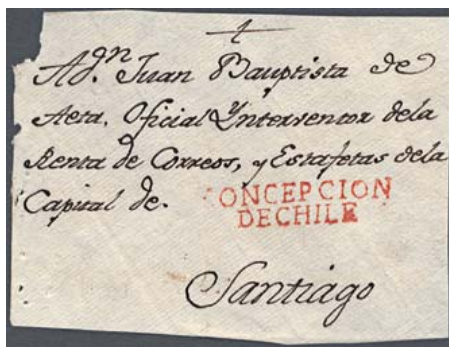 A d.ⁿ Juan Bauptista de
Aeta, Oficial Ynterventor dela
Renta de Correos, y Estafetas dela
Capital de.
ONCEPCION
DECHILE
Santiago